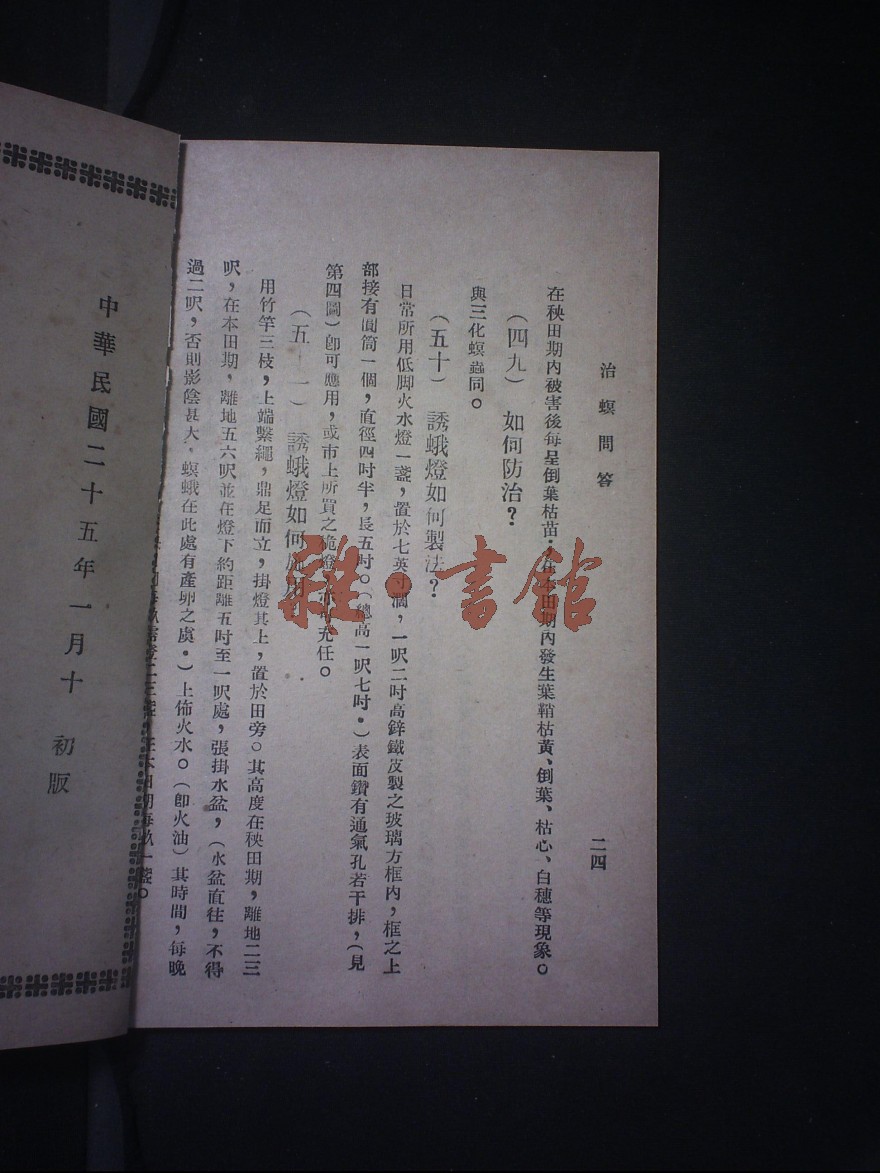 治螟問答
二四
在秧田期內被害後每呈倒葉枯苗,在本田期內發生葉鞘枯黃、倒葉、枯心、白穗等現象。
(四九) 如何防治?
與三化螟蟲同。
(五十) 誘蛾燈如何製法?
日常所用低脚火水燈一盞,置於七英寸濶,一呎二吋高鋅鐵皮製之玻璃方框內,框之上
部接有圓筒一個,直徑四吋半,長五吋。(總高一呎七吋。)表面鑽有通氣孔若干排,(見
第四圖)卽可應用,或市上所買之桅燈,亦可充任。
(五一) 誘蛾燈如何施用?
用竹竿三枝,上端繫繩,鼎足而立,掛燈其上,置於田旁。其高度在秧田期,離地二三
呎,在本田期,離地五六呎並在燈下約距離五吋至一呎處,張掛水盆,(水盆直徃,不得
過二呎,否則影陰甚大,螟蛾在此處有產卵之虞。)上佈火水。(卽火油)其時間,每晚
在本田期每畝一盞。
中華民國二十五年一月十 初版
雜·書館